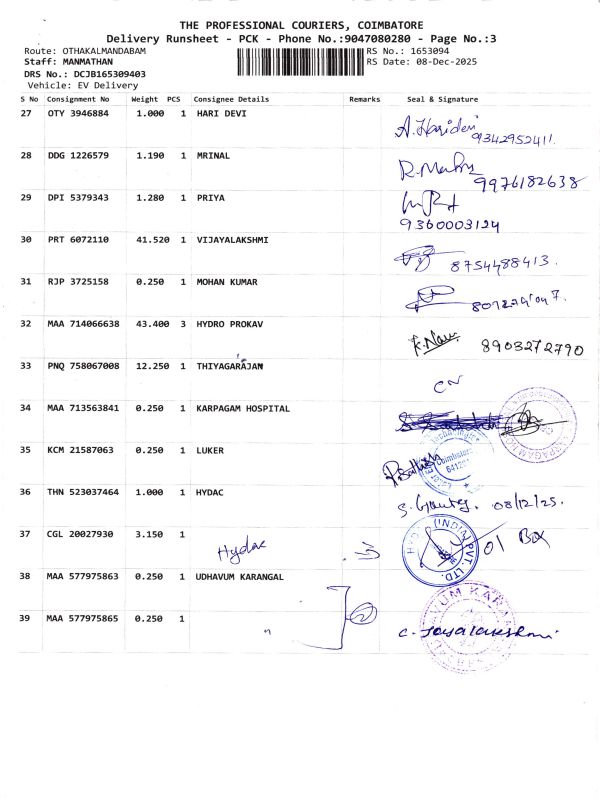 THE PROFESSIONAL COURIERS, COIMBATORE
Delivery Runsheet - PCK - Phone No.:9047080280 - Page No.:3
Route: OTHAKALMANDABAM RS No.: 1653094
Staff: MANMATHAN RS Date: 08-Dec-2025
DRS No.: DCJB165309403
Vehicle: EV Delivery
S No Consignment No Weight PCS Consignee Details Remarks Seal & Signature
27 OTY 3946884 1.000 1 HARI DEVI A.Haridevi 9342952411.
28 DDG 1226579 1.190 1 MRINAL 9976182638
29 DPI 5379343 1.280 1 PRIYA
9360003124
30 PRT 6072110 41.520 1 VIJAYALAKSHMI 8754488413.
31 RJP 3725158 0.250 1 MOHAN KUMAR
32 MAA 714066638 43.400 3 HYDRO PROKAV 8903272790
33 PNQ 758067008 12.250 1 THIYAGARAJAN
34 MAA 713563841 0.250 1 KARPAGAM HOSPITAL
35 KCM 21587063 0.250 1 LUKER
36 THN 523037464 1.000 1 HYDAC 08/12/25.
37 CGL 20027930 3.150 1 Hydac 01 Box
HYDAC (INDIA) PVT. LTD.
38 MAA 577975863 0.250 1 UDHAVUM KARANGAL
39 MAA 577975865 0.250 1 " C. Jayalakshmi